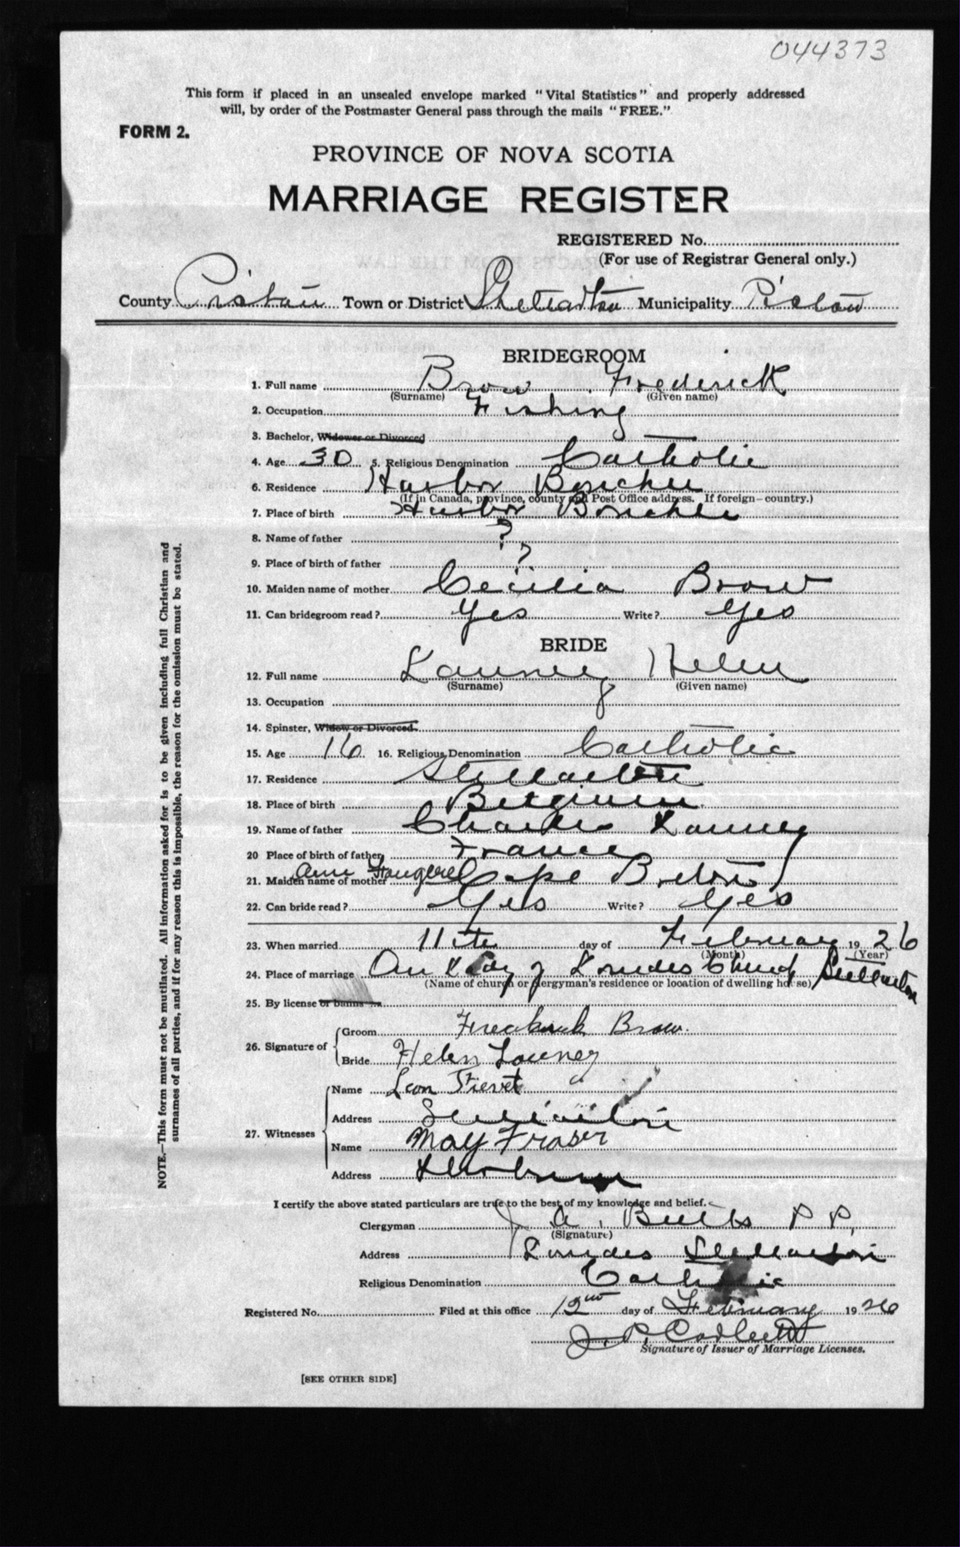 044373
This form if placed in an unsealed envelope marked "Vital Statistics" and properly addressed
will, by order of the Postmaster General pass through the mails "FREE."
FORM 2.
PROVINCE OF NOVA SCOTIA
MARRIAGE REGISTER
REGISTERED No.
(For use of Registrar General only.)
County Pictou Town or District Stellarton Municipality Pictou
BRIDEGROOM
1. Full name Brow Frederick
(Surname) (Given name)
2. Occupation Fishing
3. Bachelor, Widower or Divorced
4. Age 30 5. Religious Denomination Catholic
6. Residence Harbor Bouchee
(If in Canada, province, county and Post Office address. If foreign—country.)
7. Place of birth Harbor Bouchee
8. Name of father ?
9. Place of birth of father ?
10. Maiden name of mother Cecilia Brow
11. Can bridegroom read? Yes Write? Yes
BRIDE
12. Full name Launey Helen
(Surname) (Given name)
13. Occupation
14. Spinster, Widow or Divorced.
15. Age 16 16. Religious Denomination Catholic
17. Residence Stellarton
18. Place of birth Belgium
19. Name of father Charles Launey
20 Place of birth of father France
21. Maiden name of mother Ann Cape Breton
22. Can bride read? Yes Write? Yes
23. When married 11th day of February 1926
(Month) (Year)
24. Place of marriage Our Lady of Lourdes Church Stellarton
(Name of church or clergyman's residence or location of dwelling house)
25. By license or banns
26. Signature of
Groom Frederick Brow.
Bride Helen Launey
27. Witnesses
Name Leon
Address Stellarton
Name May Fraser
Address
I certify the above stated particulars are true to the best of my knowledge and belief.
Clergyman J. A. Butts P.P.
(Signature)
Address Lourdes Stellarton
Religious Denomination Catholic
Registered No. Filed at this office 12nd day of February 1926
J. P.
Signature of Issuer of Marriage Licenses.
[SEE OTHER SIDE]
NOTE.—This form must not be mutilated. All information asked for is to be given including full Christian and
surnames of all parties, and if for any reason this is impossible, the reason for the omission must be stated.